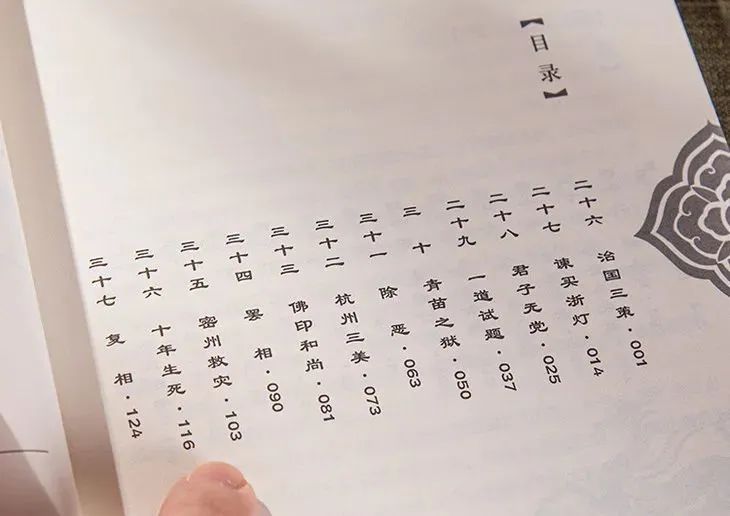 【目录】
二十六 治国三策·001
二十七 谏买浙灯·014
二十八 君子无党·025
二十九 一道试题·037
三十 青苗之狱·050
三十一 除恶·063
三十二 杭州三美·073
三十三 佛印和尚·081
三十四 罢相·090
三十五 密州救灾·103
三十六 十年生死·116
三十七 复相·124